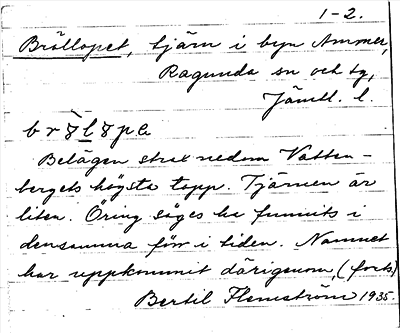 1-2.
Bröllopet, tjärn i byn Ammer,
Ragunda sn och tg,
Jämtl. l.
Belägen strax nedom Vatten-
bergets högsta topp. Tjärnen är
liten. Öring säges ha funnits i
densamma förr i tiden. Namnet
har uppkommit därigenom, (forts)
Bertil Flemström 1935.